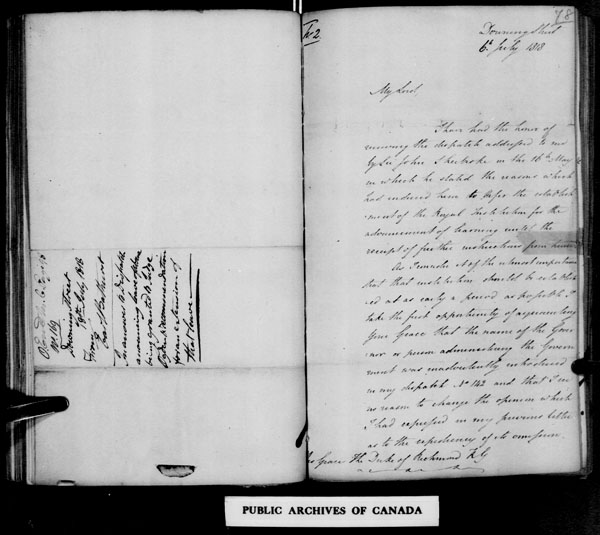 Downing Street
28th July 1816
From
Earl Bathurst
In answer to dispatch
announcing leave of absence
being granted to Judge
recommendation
for an extension of
that leave
No 2.
78
Downing Street
6th July 1818
My Lord,
I have had the honor of
receiving the dispatch addressed to me
by Sir John Sherbroke on the 16th May
in which he stated the reasons which
had induced him to defer the establish
ment of the Royal Institution for the
advancement of learning until the
receipt of further instructions from home
As I consider it of the utmost importance
that that institution should be establish
ed at as early a period as possible I
take the first opportunity of representing
Your Grace that the name of the Gover
nor or person administering the Govern
ment was inadvertently introduced
in my dispatch No 142 and that I see
no reason to change the opinion which
I had expressed in my previous letter
as to the expediency of its omission.
His Grace The Duke of Richmond K.G
PUBLIC ARCHIVES OF CANADA